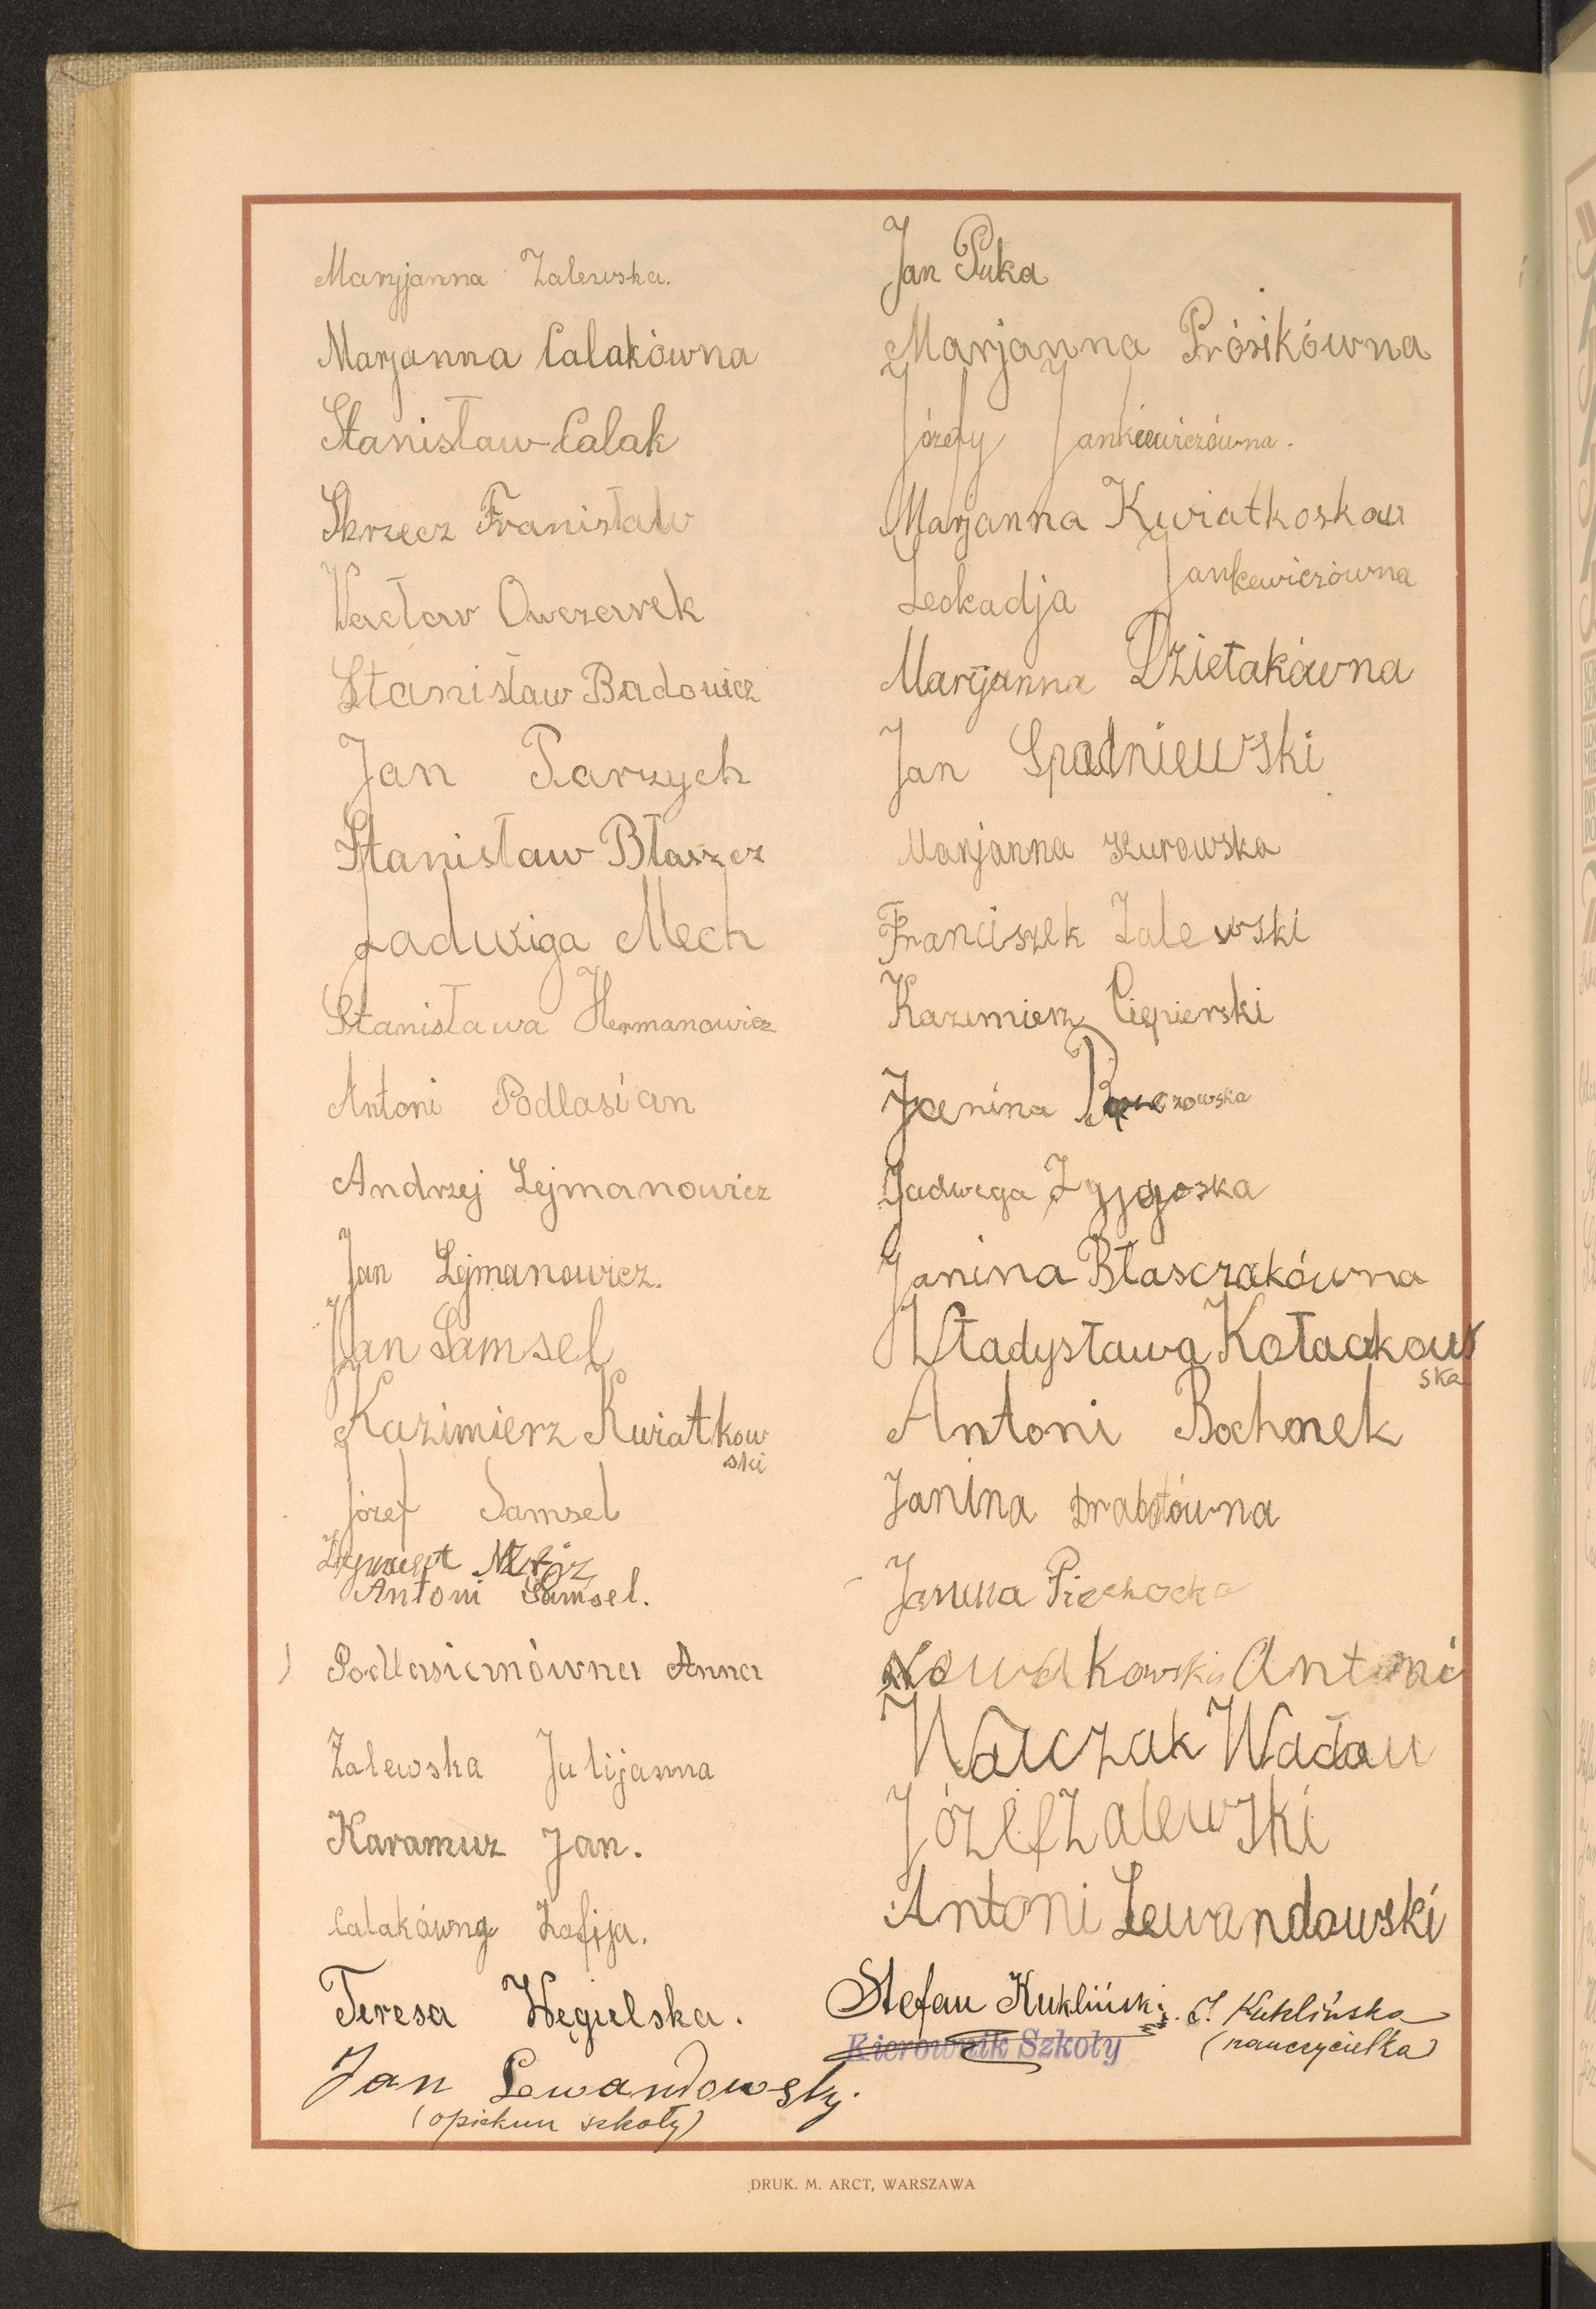 Maryjanna Zalewska.
Marjanna Calakówna
Stanisław Calak
Skrzecz Franisław
Wacław Owczarek
Stanisław Badowicz
Jan Parzych
Stanisław Błaszcz
Jadwiga Mech
Stanisława Hermanowicz
Antoni Podlasian
Andrzej Lejmanowicz
Jan Lejmanowicz.
Jan Samsel
Kazimierz Kwiatkow
ski
Józef Samsel
Zygmunt Mróz
Antoni Samsel.
Podlasianówna Anna
Zalewska Julijanna
Karamuz Jan.
Calakówna Zofija.
Teresa Węgielska.
Jan Lewandowski
(opiekun szkoły)
Jan Puka
Marjanna Prósikówna
Józefy Jankiewiczówna.
Marjanna Kwiatkoska
Leokadja Jankewiczówna
Maryjanna Dziełakówna
Jan Spadniewski
Marjanna Kurowska
Franciszek Zalewski
Kazimierz Ciepierski
Janina
Jadwega
Janina Błasczakówna
Władysława Kołackow
ska
Antoni Bochenek
Janina Drabotówna
Janina Piechocka
Nowakowski Antoni
Walczak Wacław
Józef Zalewski
Antoni Lewandowski
Stefan Kukliński J. Kuklińska
Kierownik Szkoły (nauczycielka)
DRUK. M. ARCT, WARSZAWA